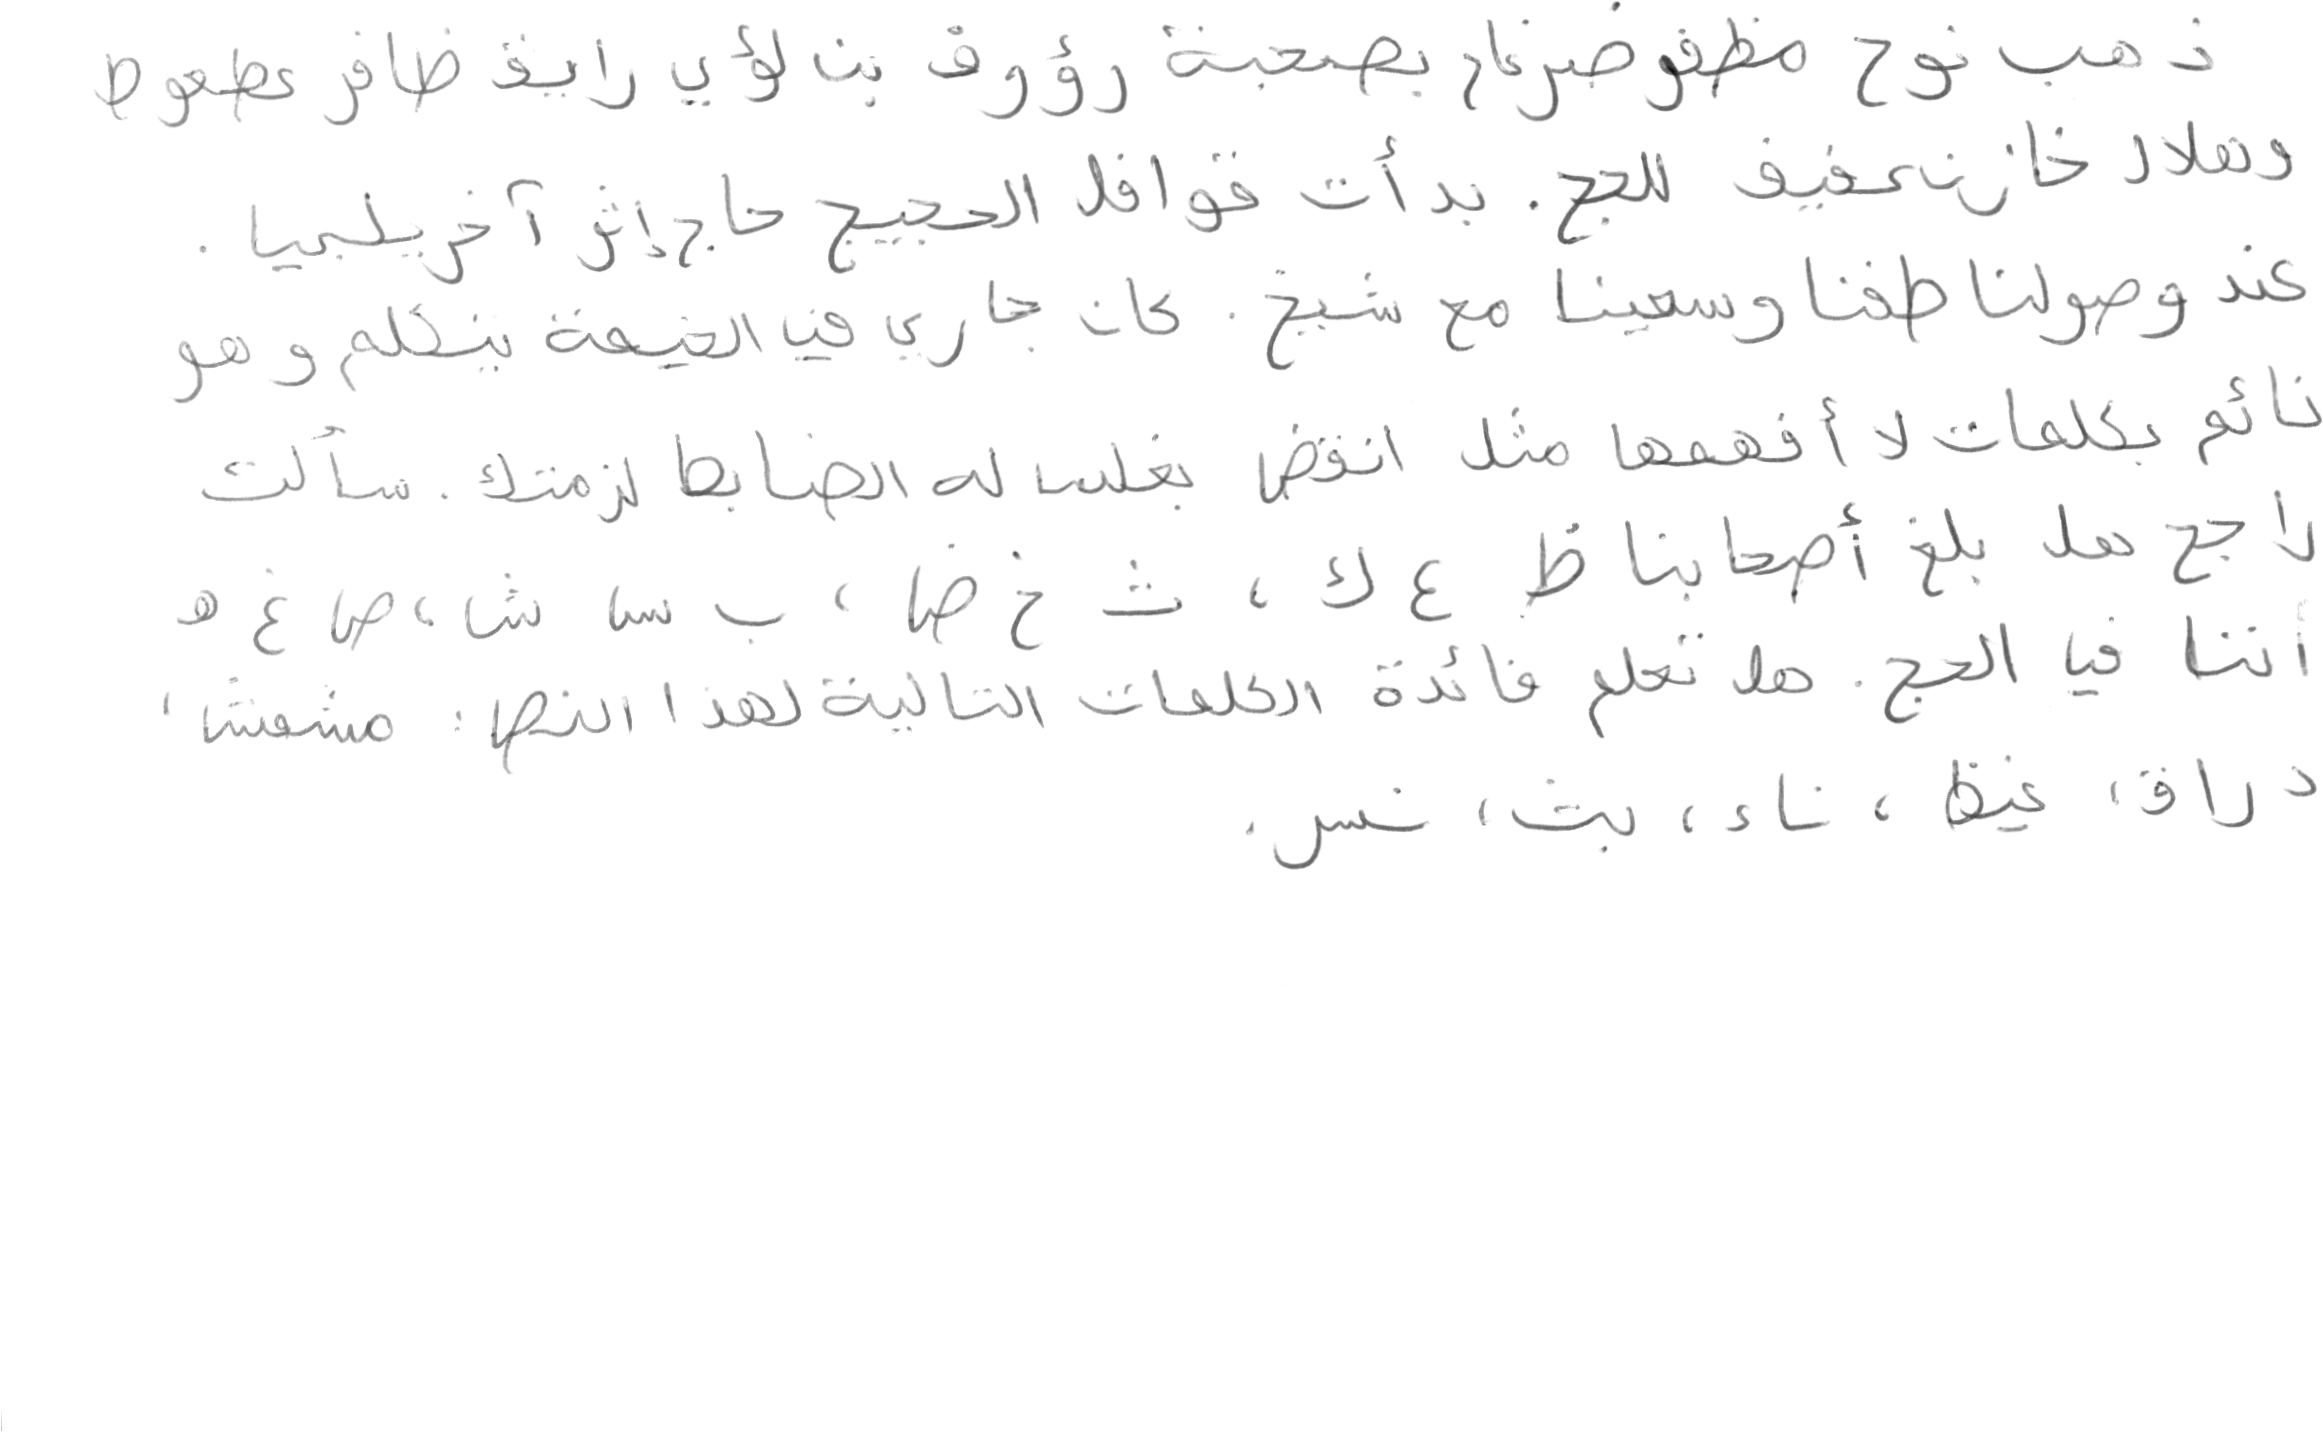 ذهب نوح مظفر ضرغام بصحبة رؤوف بن لؤي رايق ظافر عطعوط
وهلال خازن عفيف للحج. بدأت قوافل الحجيج حاج إثر آخر يلبيا.
عند وصولنا طفنا وسعينا مع شيخ. كان جاري في الخيمة يتكلم وهو
نائم بكلمات لا أفهمها مثل انقض بغلس له الضابط لزمتك. سألت
راجح هل بلغ أصحابنا ظ ع ك، ث خ ض، ب س ش، ص غ ه
أننا في الحج. هل تعلم فائدة الكلمات التالية لهذا النص: مشمش،
دراق، غيظ، ناء، بث، نسر.